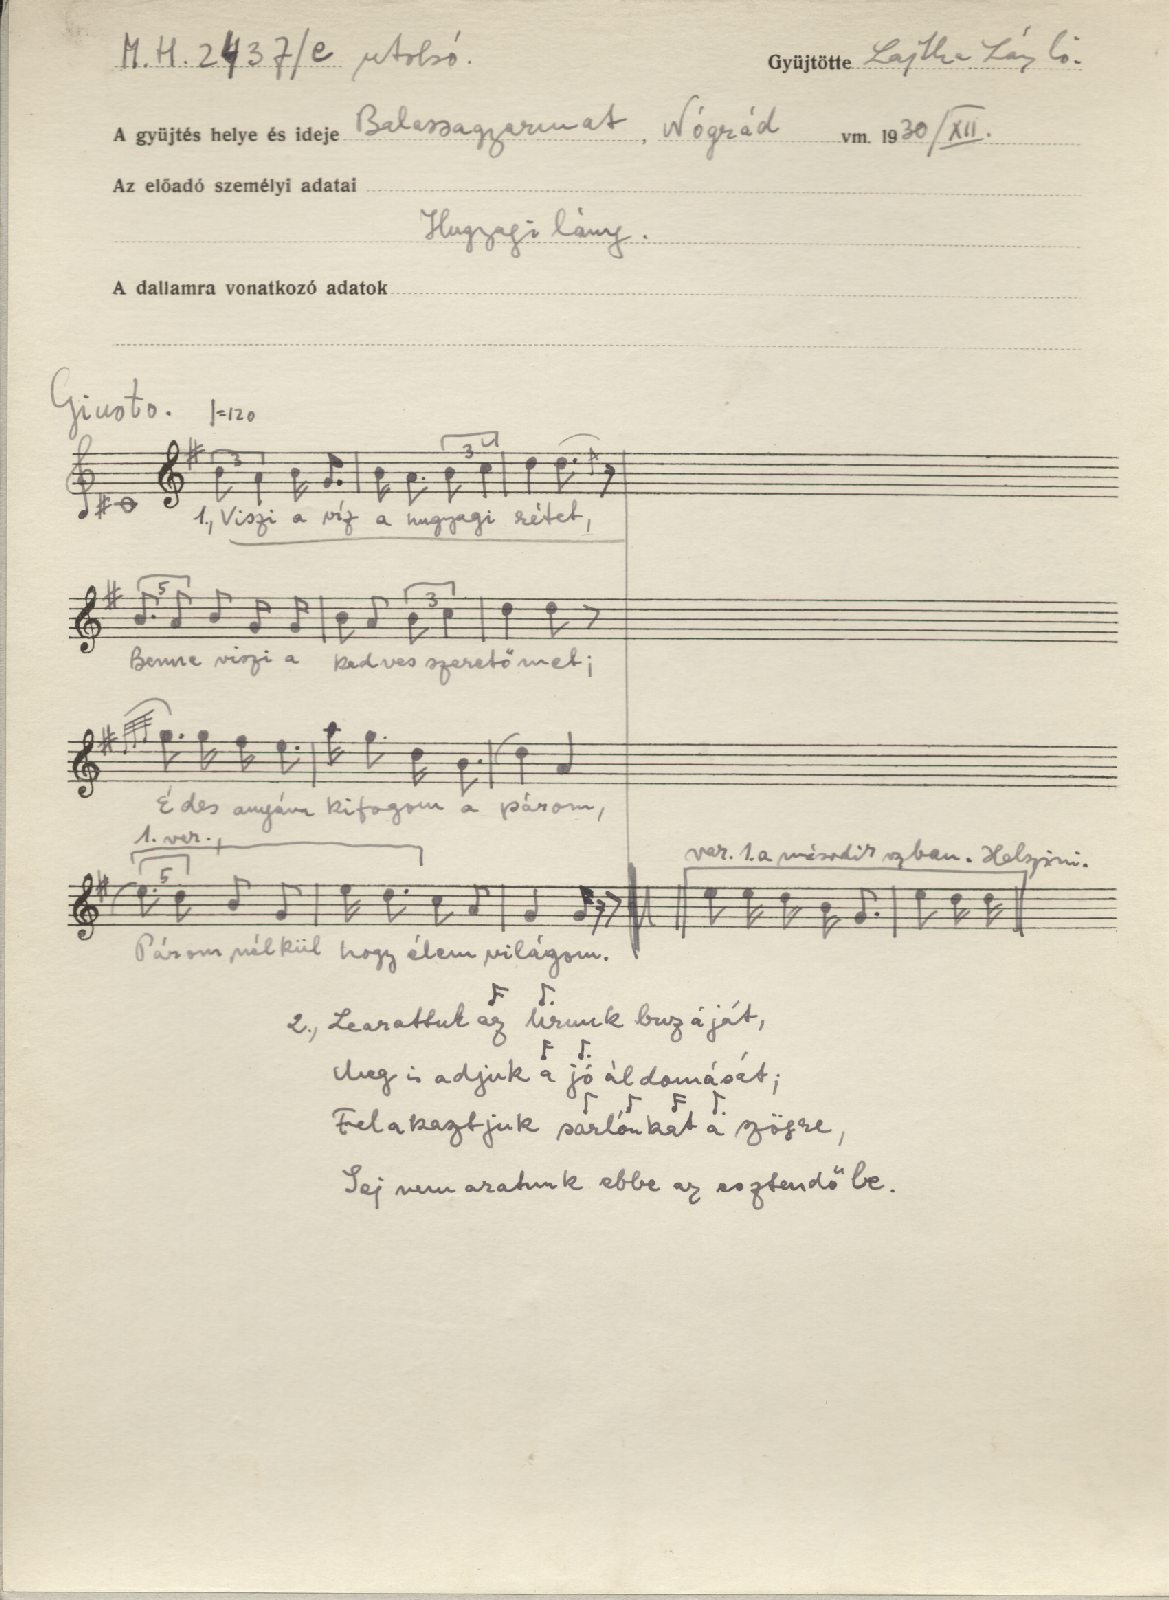 M.H. 2437/e utolsó. Gyüjtötte Lajtha László.
A gyüjtés helye és ideje Balassagyarmat, Nógrád vm. 1930/XII.
Az előadó személyi adatai
Hugyagi lány.
A dallamra vonatkozó adatok
Giusto. =120
3 3
1., Viszi a víz a hugyagi rétet,
5 3
Benne viszi a kedves szeretőmet;
Édes anyám kifogom a párom,
1. ver., var. 1. a második szban.
5
Párom nélkül hogy élem világom.
2., Learattuk az Urunk buzáját,
Meg is adjuk a jó áldomását;
Felakasztjuk sarlónkat a szögre,
Sej nem aratunk ebbe az esztendőbe.